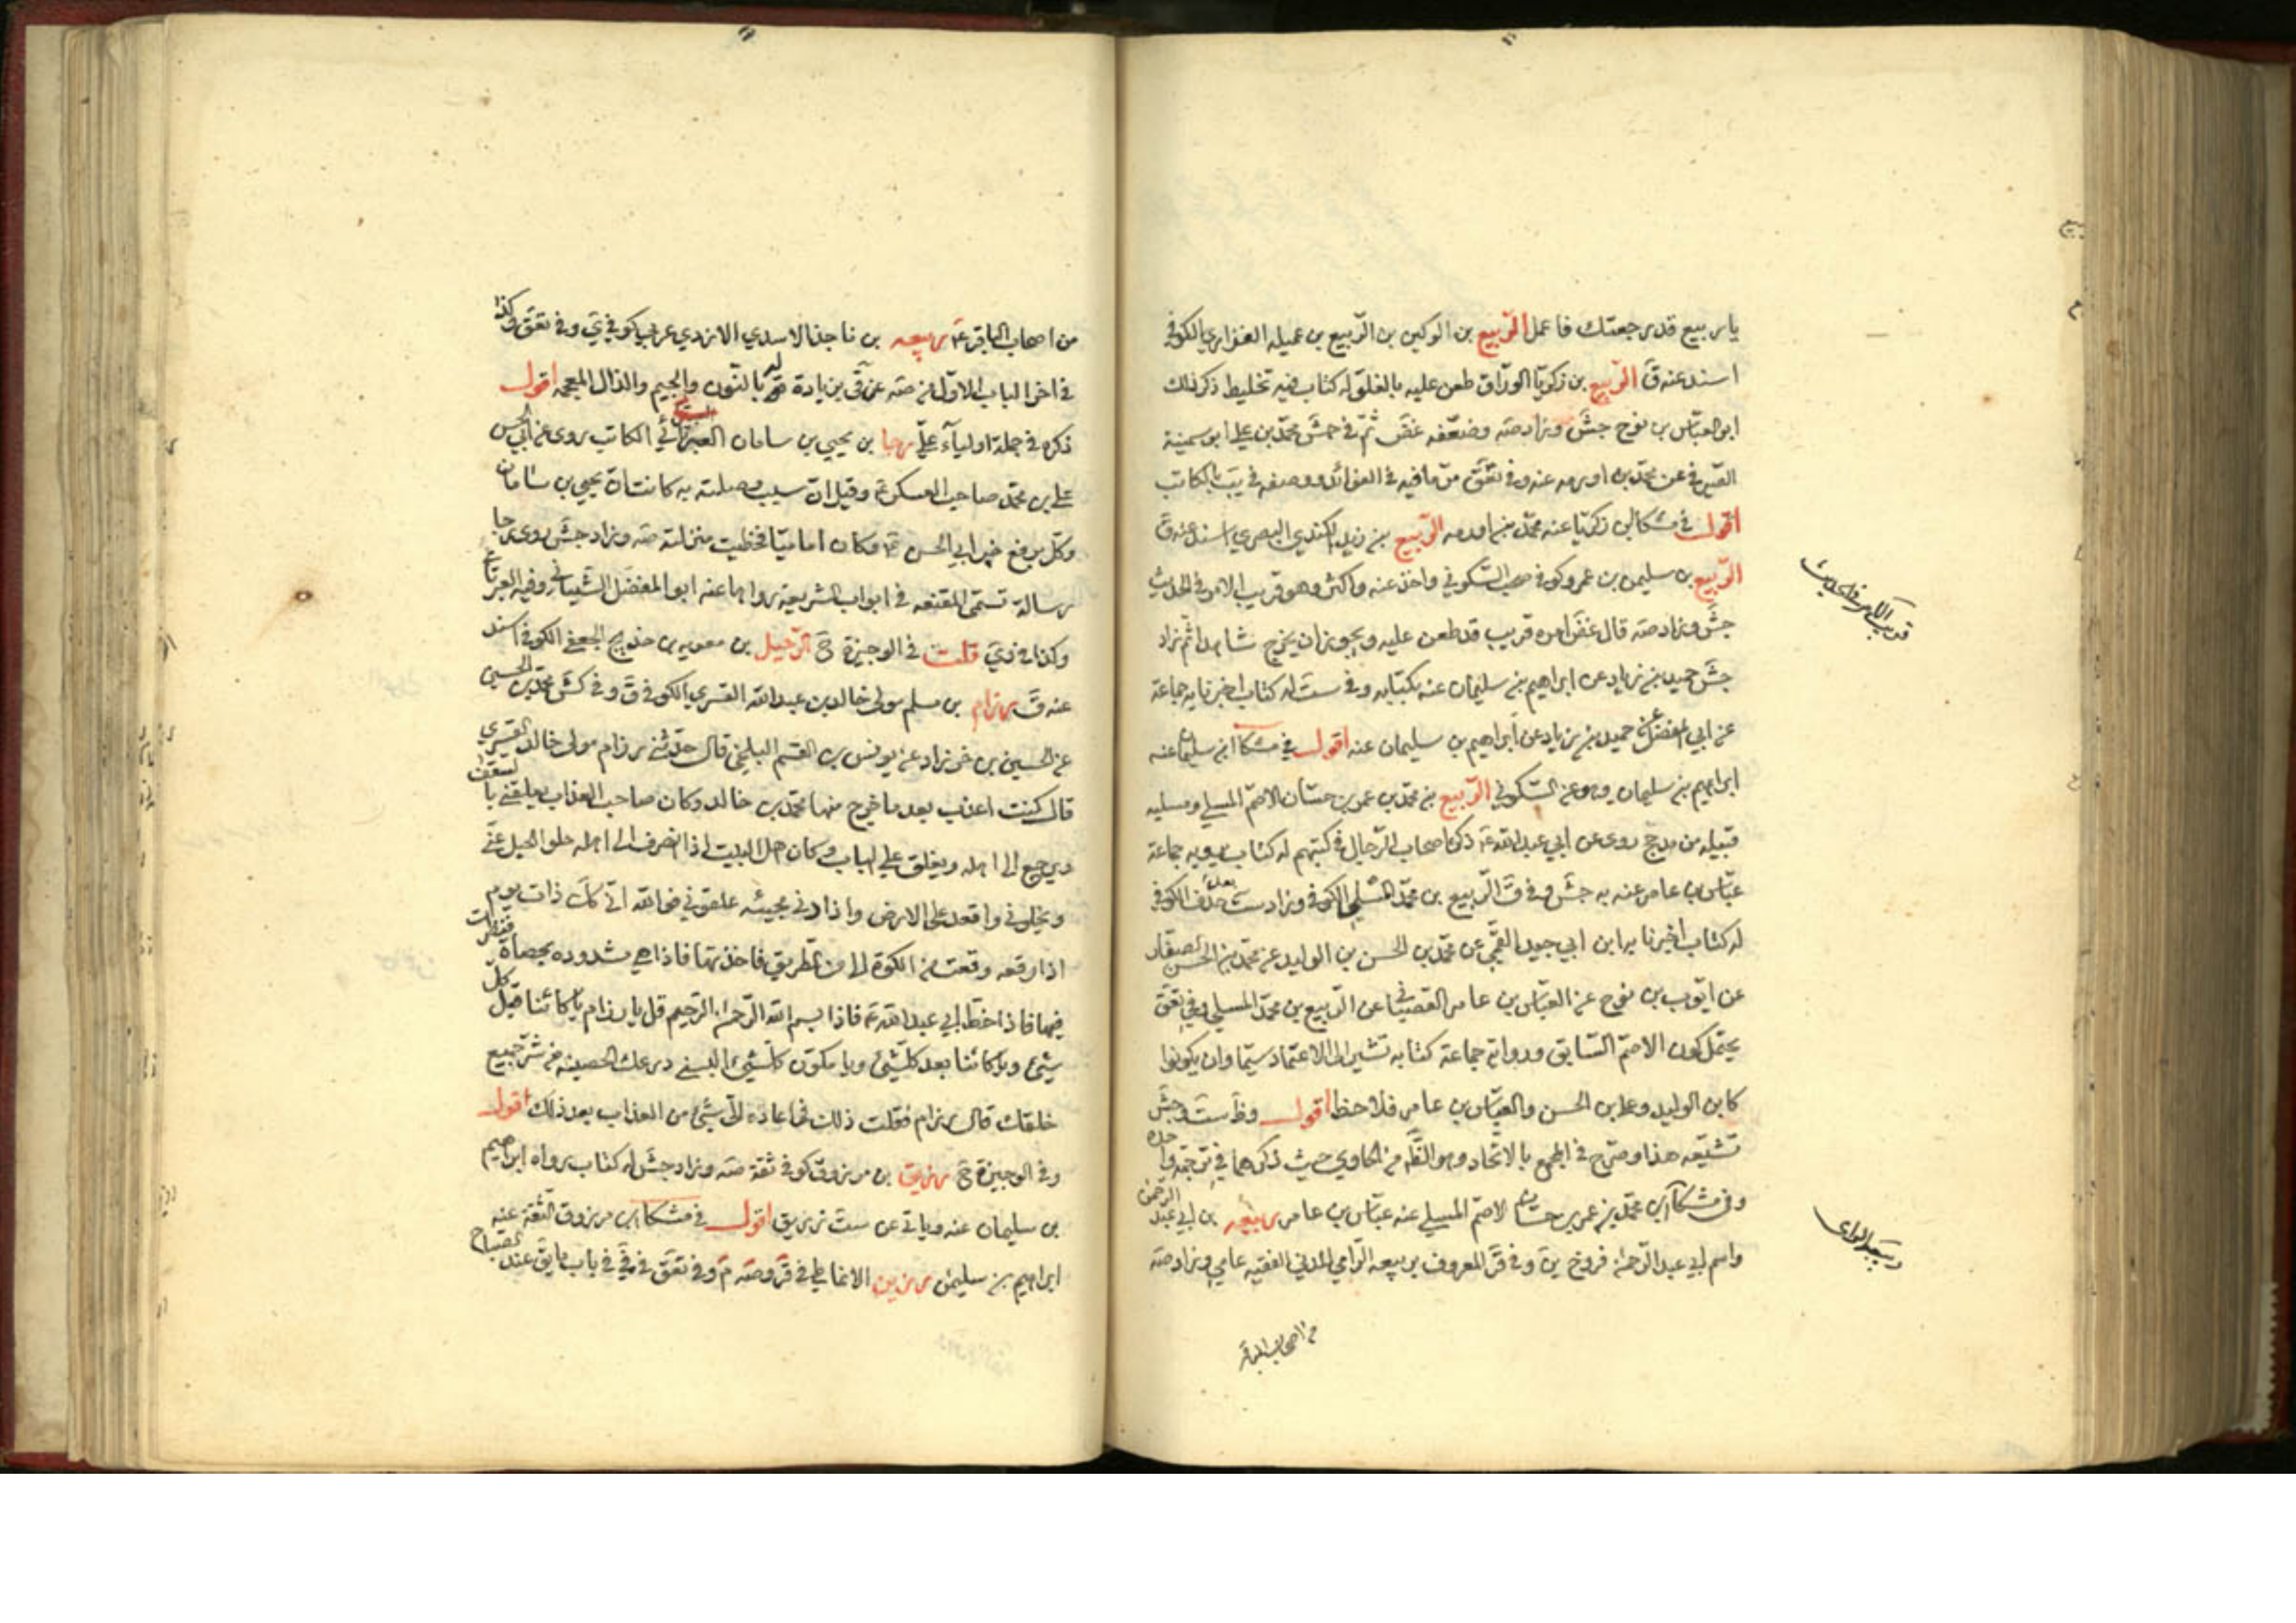 يا ربيع قدر جعتك فاعمل الربيع بن الركين بن الربيع بن عميله الفزاري الكوفي
اسند عنه ق الربيع بن زكريا الوراق طعن عليه بالغلو له كتاب فيه تخليط ذكر ذلك
ابو العباس بن نوح جش وزاد صه وضعفه غض ثم في جش محمد بن علي ابو سمينة
الصيرفي عن محمد بن اورمه عنه وفي تعق مر ما فيه في الفوائد ووصفه في يب بالكاتب
اقول في مشكا ابن زكريا عنه محمد بن اورمه الربيع بن زيد الكندي البصري اسند عنه ق
الربيع بن سليمن بن عمرو كوفي صحب السكوني واخذ عنه واكثر وهو قريب الامر في الحديث
جش وزاد صه قال غض امره قريب قد طعن عليه ويجوز ان يخرج شاهدا ثم زاد
جش حميد بن زياد عن ابراهيم بن سليمان عنه بكتابه وفي ست له كتاب اخبرنا به جماعة
عن ابي المفضل عن حميد بن زياد عن ابراهيم بن سليمان عنه اقول في مشكا ابن سليمان عنه
ابراهيم بن سليمان وهو عن السكوني الربيع بن محمد بن عمر بن حسان الاصم المسلي ومسليه
قبيله من مذحج روى عن ابي عبد الله ع ذكره اصحاب الرجال في كتبهم له كتاب يرويه جماعة
عباس بن عامر عنه به جش وفي ق الربيع بن محمد المسلي الكوفي وزاد ست بعد حذف الكوفي
له كتاب اخبرنا به ابن ابي جيد القمي عن محمد بن الحسن بن الوليد عن محمد بن الحسن الصفار
عن ايوب بن نوح عن العباس بن عامر القصباني عن الربيع بن محمد المسلي وفي تعق
يحتمل كون الاصم السابق ورواية جماعة كتابه تشير الى الاعتماد سيما وان يكونوا
كابن الوليد وعلي بن الحسن والعباس بن عامر فلاحظ اقول وظ ست وجش
تشيعه هذا وصرح في المجمع بالاتحاد وهو الظ من الحاوي حيث ذكرهما في ترجمة واحده
وفي مشكا ابن محمد بن عمر بن حسان الاصم المسلي عنه عباس بن عامر ربيعه بن ابي عبد الرحمن
واسم ابي عبد الرحمن فروخ ين وفي قر المعروف بربيعه الراي المدني الفقيه عامي وزاد صه
من اصحاب الباقر
قريب الامر في الحديث
ربيعة الراي
من اصحاب الباقر ع ربيعه بن ناجذ الاسدي الازدي عربي كوفي ي وفي تعق كذا
في اخر الباب الاول من صه عن قي بن يادة له بالنون والجيم والذال المعجمه اقول
ذكره في جملة اولياء علي رجا بن يحيى بن سامان العبرتائي الكاتب روى عن ابي الحسن
علي بن محمد صاحب العسكر ع وقيل ان سبب وصلته به كانت ان يحيى بن سامان
وكل برفع خبر ابي الحسن ع وكان اماميا فحظيت منزلته صه وزاد جش روى رجا
رسالة تسمى المقنعه في ابواب الشريعة رواها عنه ابو المفضل الشيباني وفيه العبرتائي
وكذا في دي قلت في الوجيزة ح الرحيل بن معويه بن حديج الجعفي الكوفي اسند
عنه ق رزام بن مسلم مولى خالد بن عبد الله القسري الكوفي ق وفي كش محمد بن الحسين
عن الحسين بن خرزاد عن يونس بن القسم البلخي قال حدثني رزام مولى خالد القسري
قال كنت اعذب بعد ما خرج منها محمد بن خالد وكان صاحب العذاب يعلقني بالسقف
ويرجع الى اهله ويغلق علي الباب وكان اهل البيت اذا انصرف الى اهله حلوا الحبل عني
ويخلوني واقعد على الارض واذا دنى مجيئه علقوني فوالله اني كك ذات يوم
اذا رقعه وقعت من الكوة الي من الطريق فاخذتها فاذا هي مشدوده بحصاة فنظرت
فيها فاذا خط ابي عبد الله ع فاذا بسم الله الرحمن الرحيم قل يا رزام يا كائنا قبل كل
شيء ويا كائنا بعد كل شيء ويا مكون كل شيء البسني درعك الحصينه من شر جميع
خلقك قال رزام فقلت ذلك فما عاد الي شيء من العذاب بعد ذلك اقول
وفي الوجيزة ح رزيق بن مرزوق كوفي ثقة صه وزاد جش له كتاب رواه ابراهيم
بن سليمان عنه وياتي عن ست زريق اقول في مشكا ابن مرزوق الثقة عنه
ابراهيم بن سليمن رزين الانماطي في قر وصه م وفي تعق في في باب ما يق عند الصباح